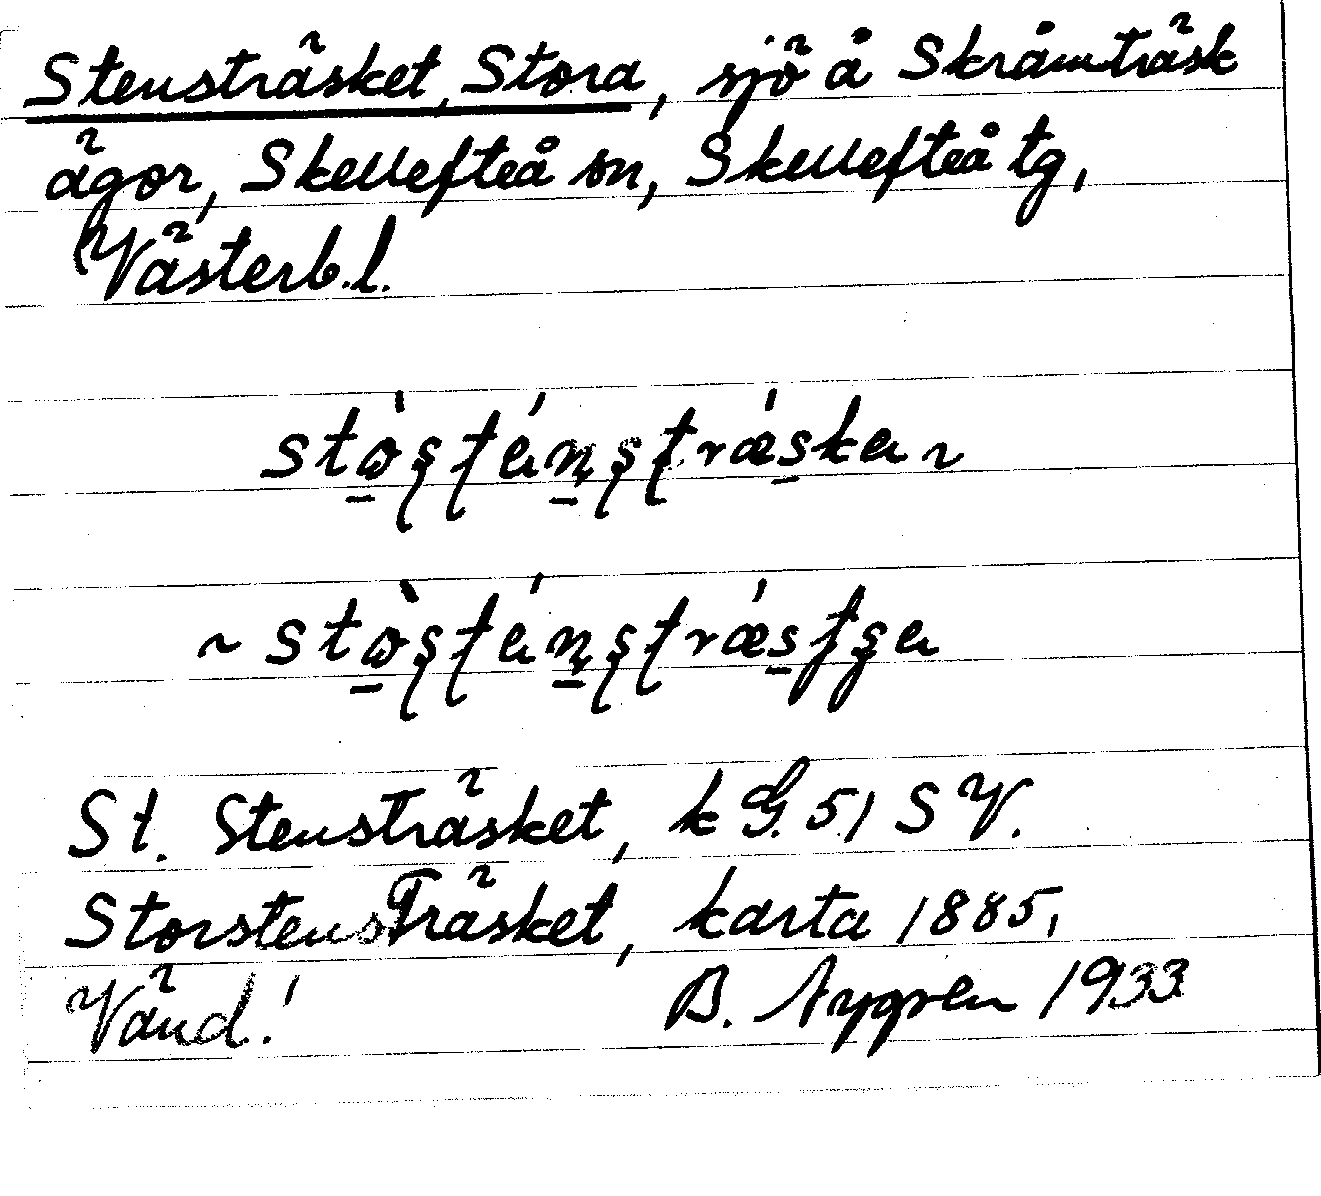 Stensträsket, Stora, sjö å Skråmträsk
ägor, Skellefteå sn, Skellefteå tg,
Västerb.l.
St. Stensträsket, k G. 51 SV.
StorstensTräsket, karta 1885,
Vänd!
B. Nygren 1933